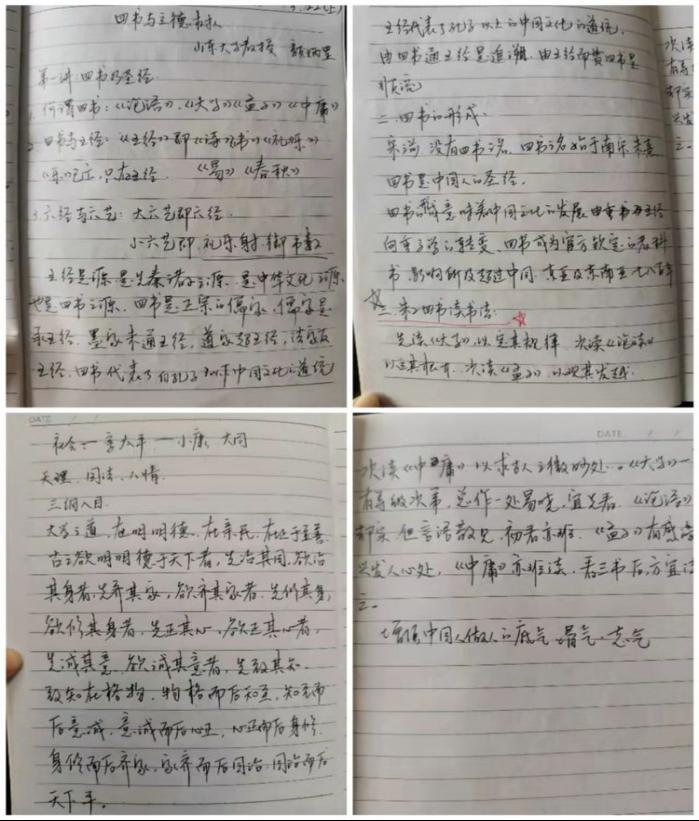 四书与立德树人
山东大学教授 颜炳罡
第一讲:四书的圣经
1. 何谓四书:《论语》、《大学》《孟子》《中庸》
2. 四书与五经:《五经》即《诗》《书》《礼》《乐》
《乐》已亡,只有五经. 《易》《春秋》
3. 六经与六艺:大六艺即六经.
小六艺即.礼乐射御书数
五经是源是先秦诸子之源.是中华文化之源
也是四书之源.四书是正宗的儒家.儒家是
承五经,墨家未通五经,道家超五经,法家反
五经.四书代表了自孔子以来中国文化之道统
五经代表了孔子以上的中国文化的道统,
由四书通五经是追溯.由五经而贯四书是
顺流
二.四书的形成:
宋前没有四书之名.四书之名始于南宋朱熹
四书是中国人的圣经.
四书的意味着中国文化的发展由重书五经
向重子学的转变.四书成为官方钦定的教科
书.影响所及超过中国.直至及东南亚七八百年
三.朱子四书读书法:
先读《大学》,以定其规律.次读《论语》
以立其根本.次读《孟子》,以观其发越.
DATE
社会:一 一小康.大同
天理.国法.人情.
三纲八目.
大学之道,在明明德,在亲民,在止于至善.
古之欲明明德于天下者,先治其国,欲治
其身者,先齐其家,欲齐其家者,先修其身,
欲修其身者,先正其心,欲正其心者,
先诚其意.欲诚其意者,先致其知.
致知在格物.物格而后知至,知至而
后意诚,意诚而后心正,心正而后身修.
身修而后齐家,家齐而后国治,国治而后
天下平.
DATE
次读《中庸》以求古人之微妙处.《大学》一
有等级次第,总作一处易晓,宜先看.《论语》
却实.但言语散见,初看亦难.《孟子》有感激
兴发人心处,《中庸》亦难读,看三书后,方宜读
之.
增强中国人做人的底气.骨气.志气